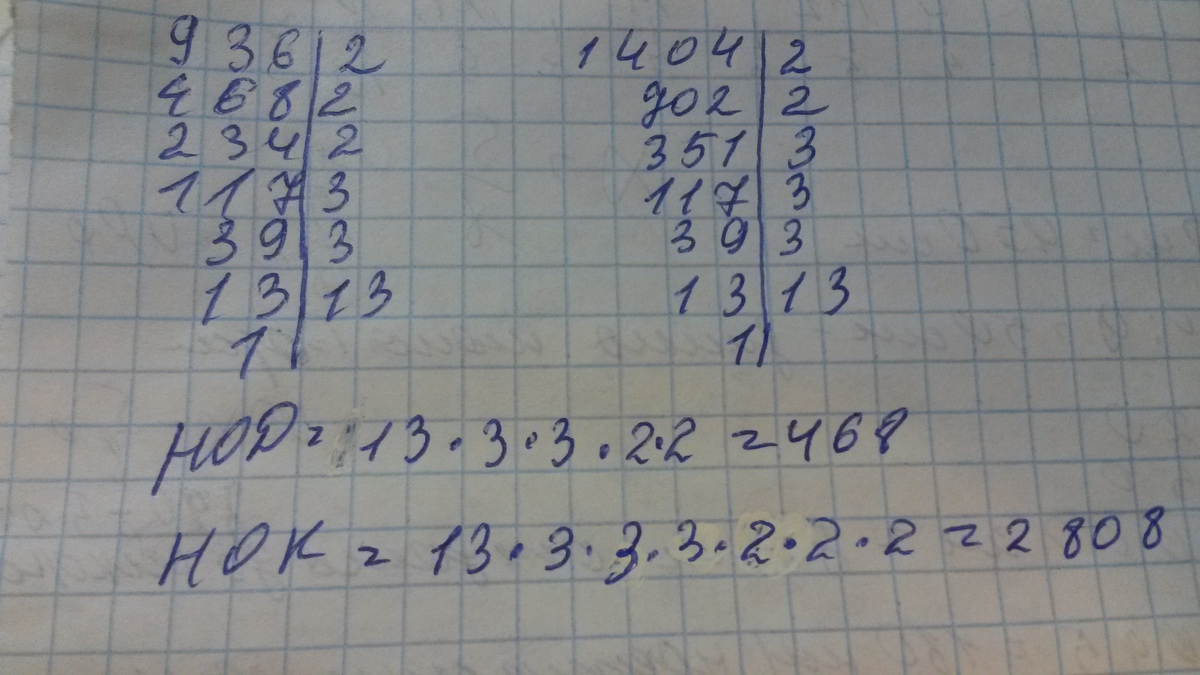 936 | 2 1404 | 2
468 | 2 702 | 2
234 | 2 351 | 3
117 | 3 117 | 3
39 | 3 39 | 3
13 | 13 13 | 13
1 | 1 |
НОД = 13 · 3 · 3 · 2 · 2 = 468
НОК = 13 · 3 · 3 · 3 · 2 · 2 · 2 = 2808